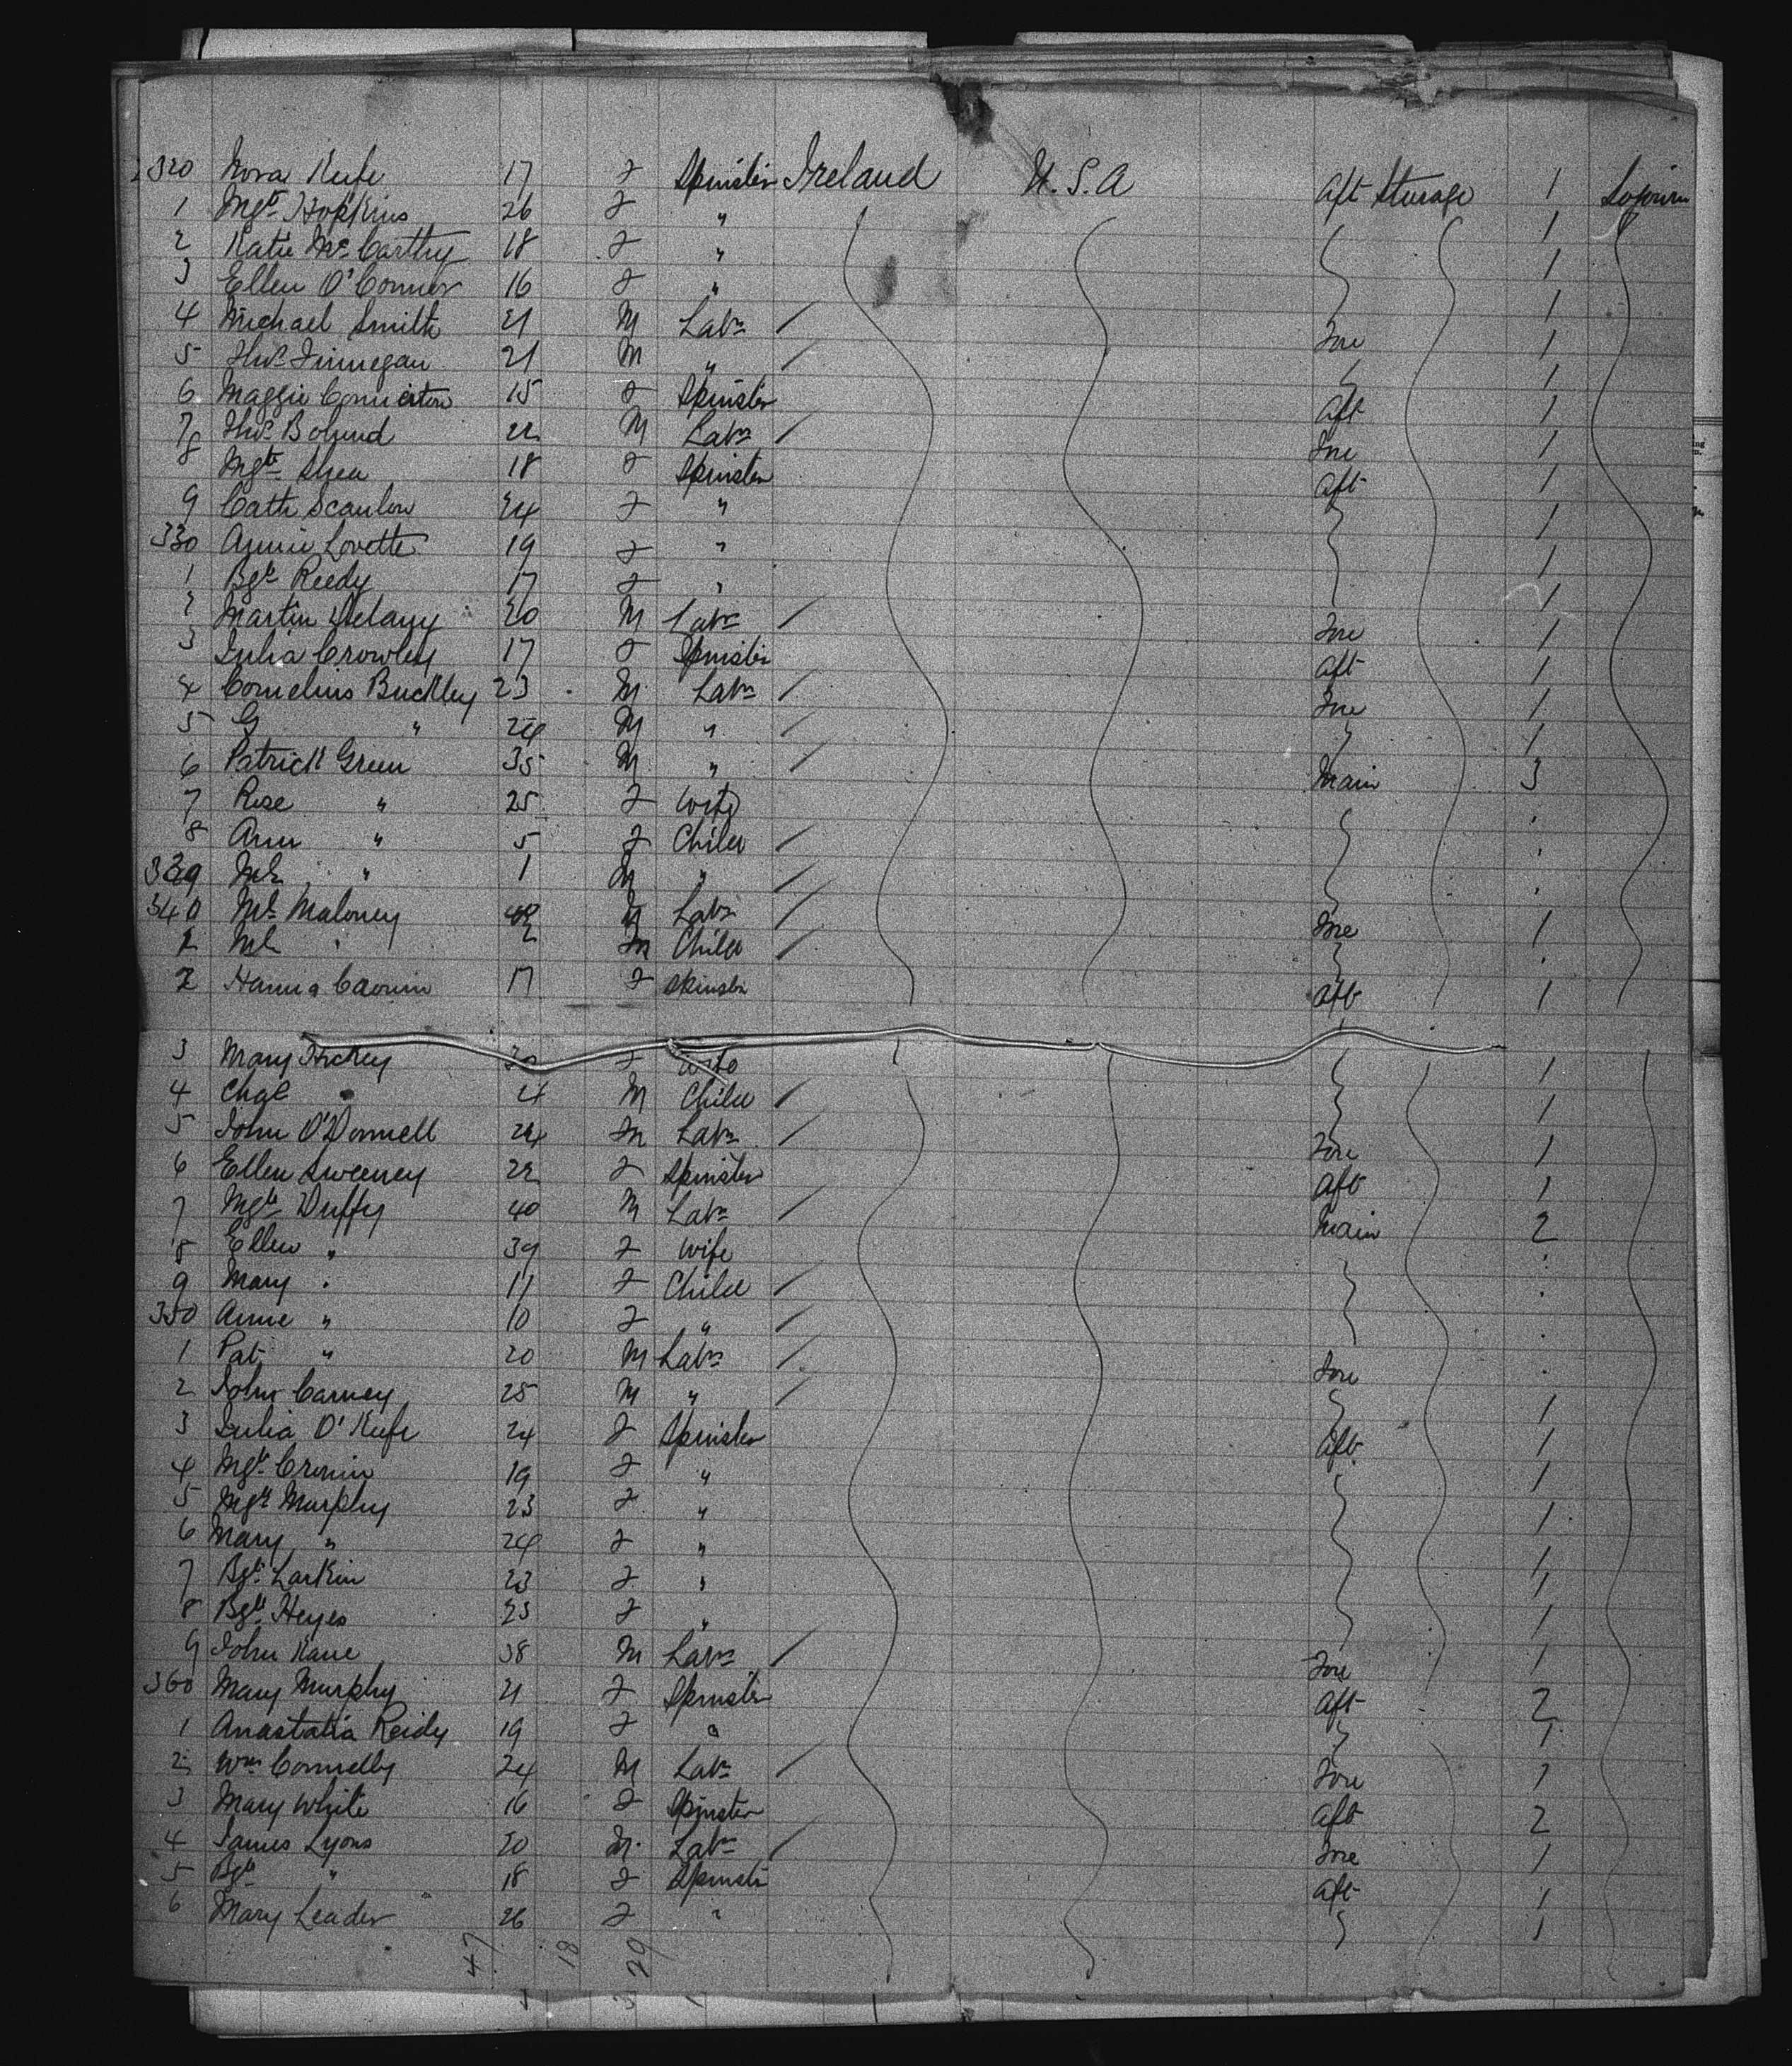 320 Nora Keefe 17 F Spinster Ireland U.S.A Aft Sterage 1 Sojourn
1 Mgt Hopkins 26 F " 1
2 Katie McCarthy 18 F " 1
3 Ellen O'Connor 16 F " 1
4 Michael Smith 21 M Labr / Fore 1
5 Thos Finnegan 21 M " / 1
6 Maggie 15 F Spinster Aft 1
7 Thos Bolund 22 M Labr / Fore 1
8 Mgt Shea 18 F Spinster Aft 1
9 Cath Scanlon 24 F " 1
330 Annie Lovette 19 F " 1
1 Bgt Reedy 17 F " 1
2 Martin Delany 20 M Labr / Fore 1
3 Julia Crowley 17 F Spinster Aft 1
4 Cornelius Buckley 23 M Labr / Fore 1
5 G " 24 M " / 1
6 Patrick Green 35 M " / Main 3
7 Rose " 25 F Wife
8 Ann " 5 F Child /
339 Ml " 1 M " /
340 Ml Maloney M Labr / Fore 1
1 Ml " 2 M Child /
2 Hanna Cronin 17 F Spinster Aft 1
3 Mary Hickey F Wife 1
4 Chas " 4 M Child / 1
5 John O'Donnell 24 M Labr / Fore 1
6 Ellen Sweeney 22 F Spinster Aft 1
7 Mgt Duffy 40 M Labr / Main 2
8 Ellen " 39 F Wife
9 Mary " 11 F Child /
350 Annie " 10 F " /
1 Pat " 20 M Labr / Fore
2 John Carney 25 M " / 1
3 Julia O'Keefe 24 F Spinster Aft 1
4 Mgt Cronin 19 F " 1
5 Mgt Murphy 23 F " 1
6 Mary " 24 F " 1
7 Bgt Larkin 23 F " 1
8 Bgt Heyes 23 F " 1
9 John Kane 38 M Labr / Fore 1
360 Mary Murphy 21 F Spinster Aft 2
1 Anastatia Reidy 19 F " 1
2 Wm Connelly 24 M Labr / Fore 1
3 Mary White 16 F Spinster Aft 2
4 James Lyons 20 M Labr / Fore 1
5 Bgt " 18 F Spinster Aft 1
6 Mary Leader 26 F " 1
47 18 29